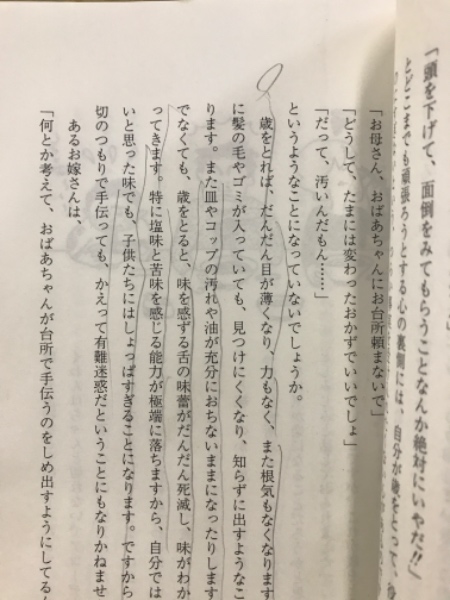 「頭を下げて、面倒をみてもらうことなんか絶対にいやだ!!」
とどこまでも頑張ろうとする心の裏側には、自分が歳をとって、
「お母さん、おばあちゃんにお台所頼まないで」
「どうして、たまには変わったおかずでいいでしょ」
「だって、汚いんだもん……」
というようなことになっていないでしょうか。
歳をとれば、だんだん目が薄くなり、力もなく、また根気もなくなります
に髪の毛やゴミが入っていても、見つけにくくなり、知らずに出すようなこ
ります。また皿やコップの汚れや油が充分におちないままになったりします
でなくても、歳をとると、味を感ずる舌の味蕾がだんだん死滅し、味がわか
ってきます。特に塩味と苦味を感じる能力が極端に落ちますから、自分では
いと思った味でも、子供たちにはしょっぱすぎることになります。ですから
切のつもりで手伝っても、かえって有難迷惑だということにもなりかねませ
あるお嫁さんは、
「何とか考えて、おばあちゃんが台所で手伝うのをしめ出すようにしてる